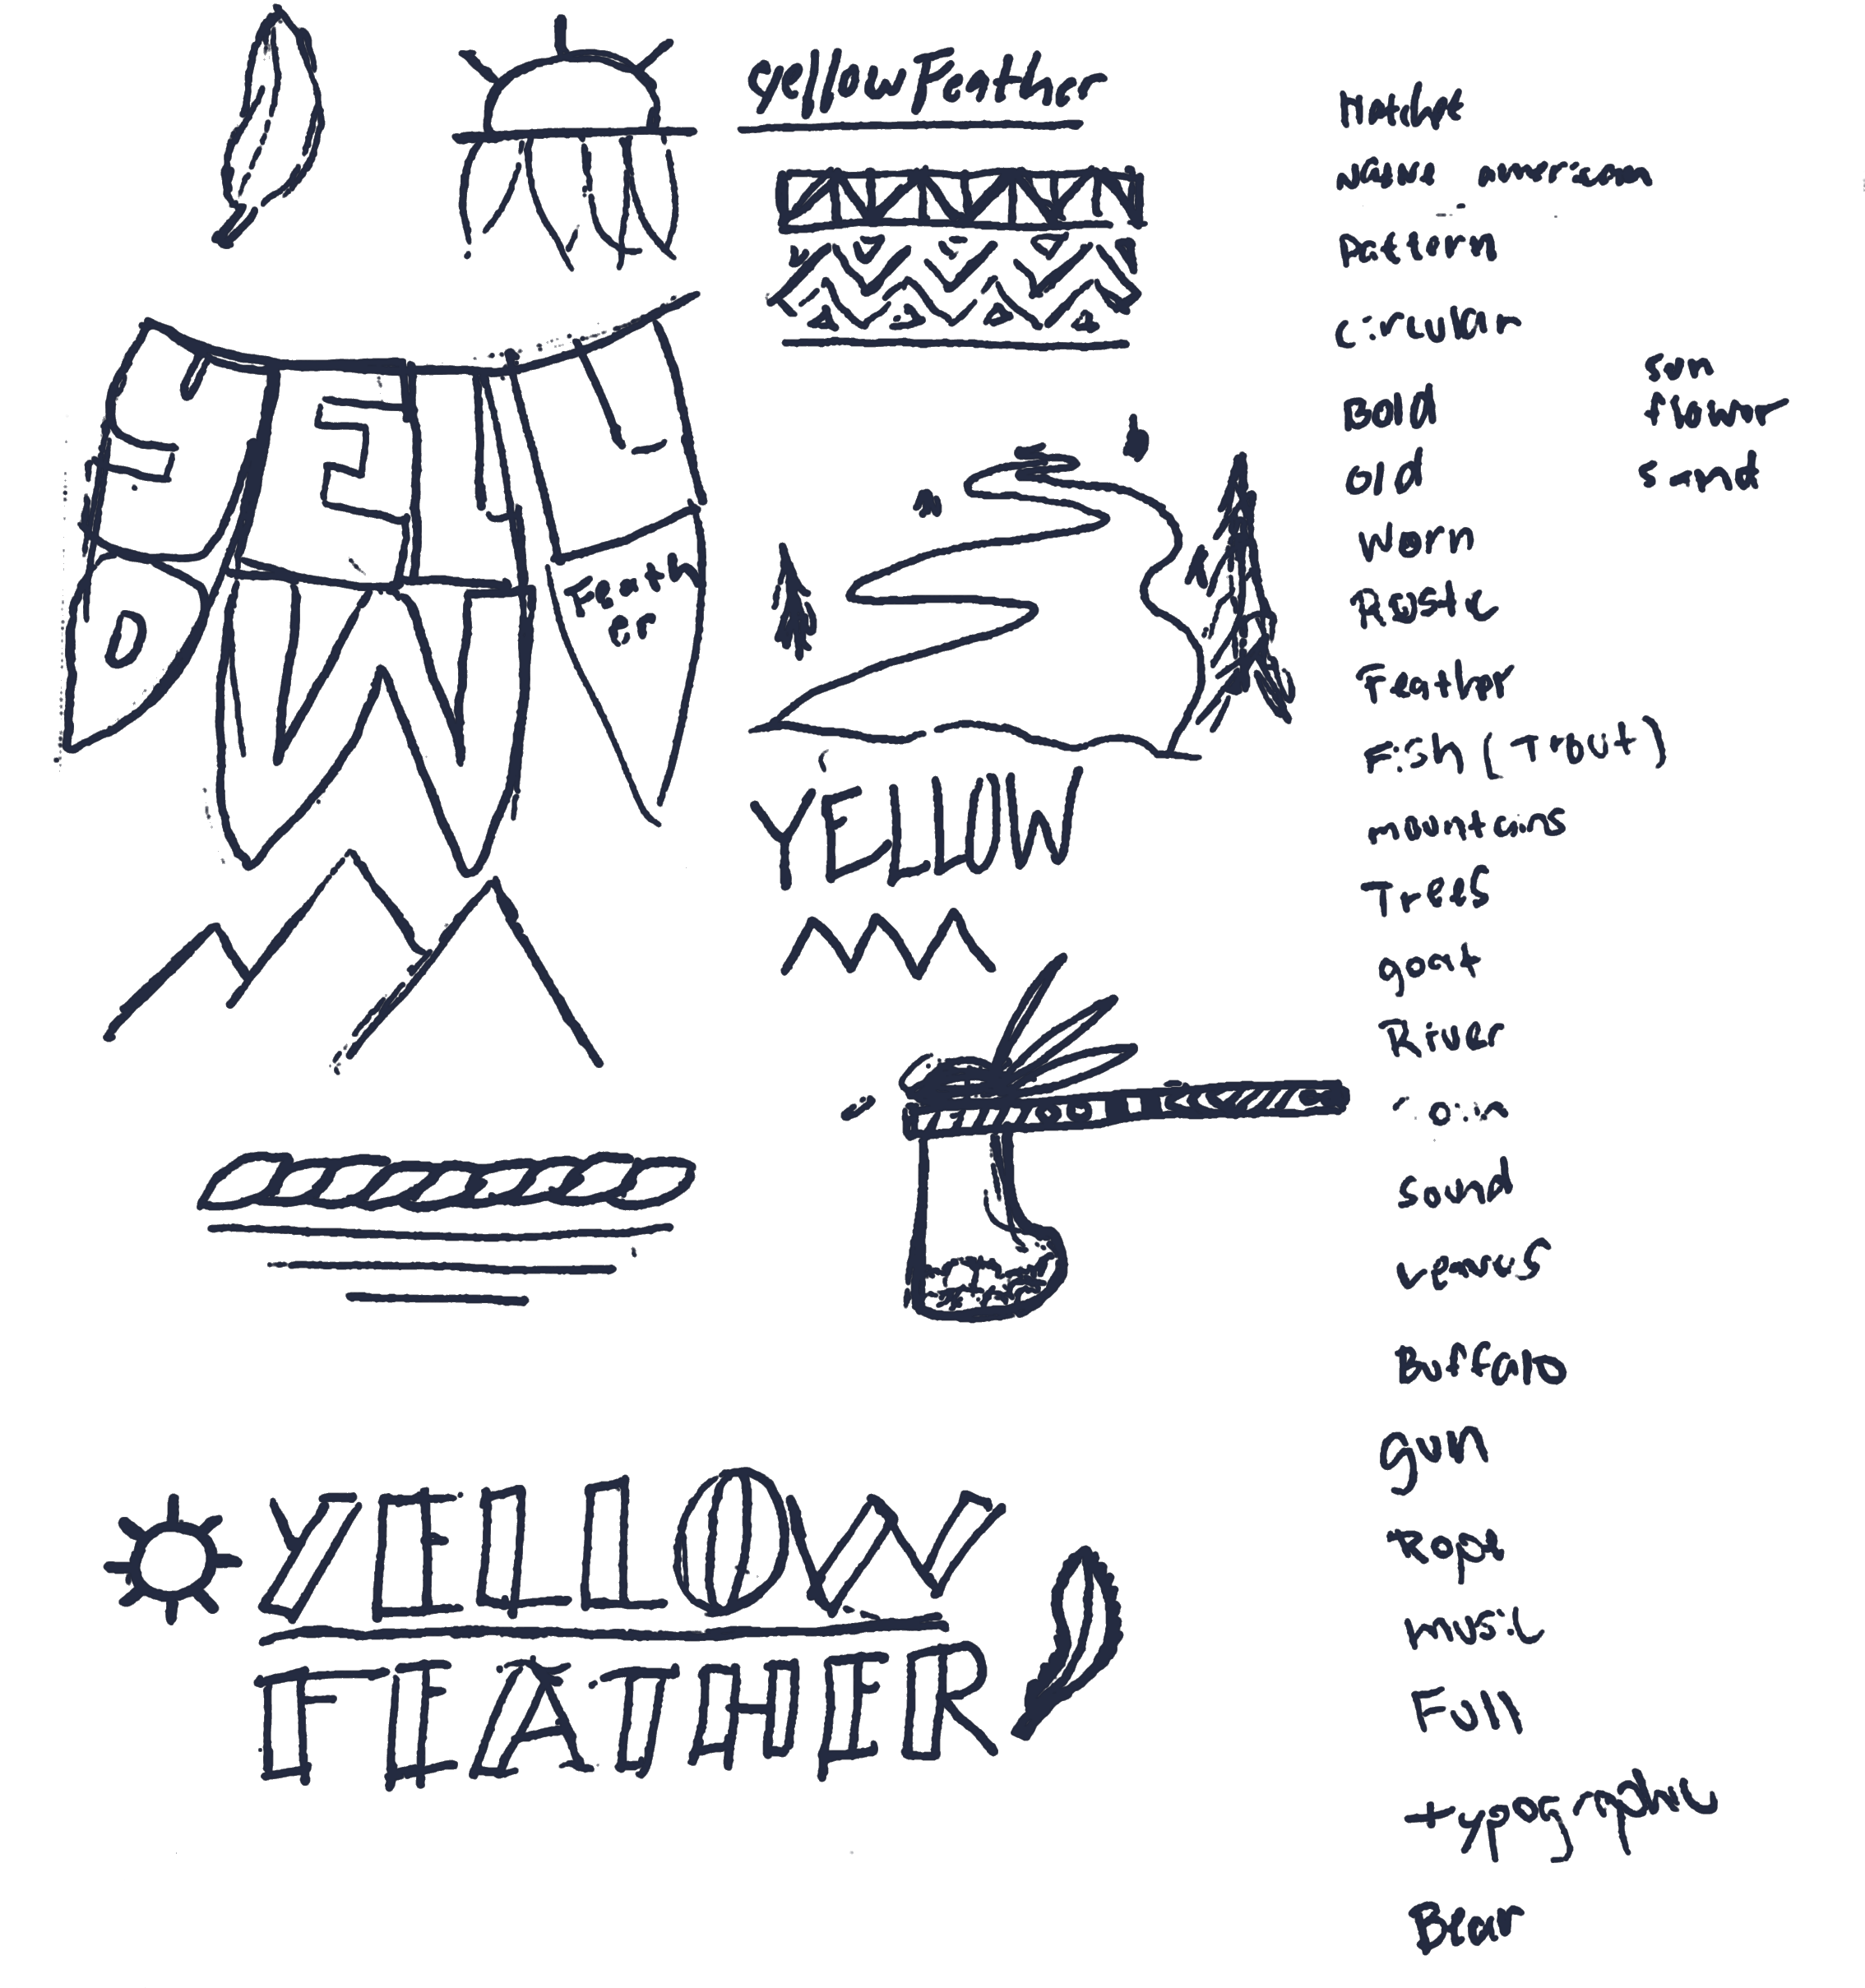 Yellow Feather
Hatchet
Native american
Pattern
circular
Bold
old
Worn
Rustic
Feather
Fish (Trout)
mountains
Trees
goat
River
sound
venus
Buffalo
gun
Rope
music
Full
typographic
Bear
sun
flower
sand
Feath
er
YELLOW
YELLOW
FEATHER